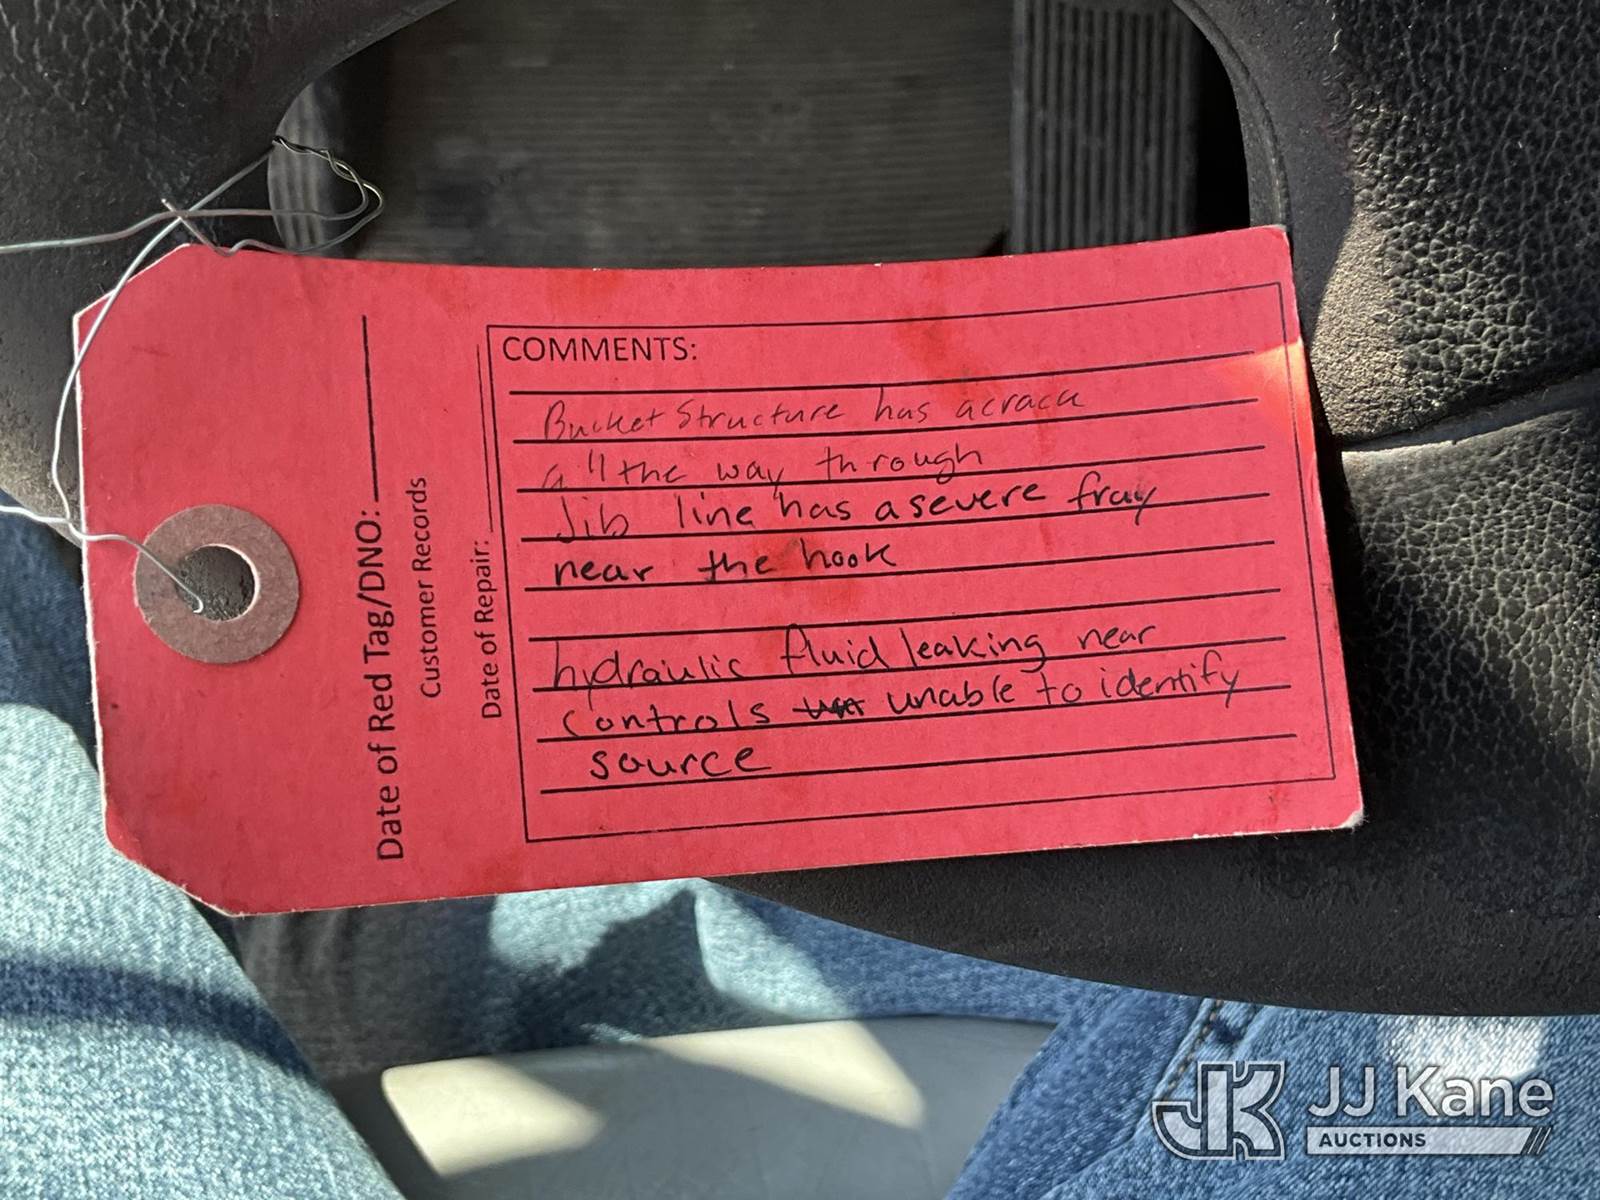 COMMENTS:
Bucket Structure has a crack
all the way through
Jib line has a severe fray
near the hook
hydraulic fluid leaking near
controls unable to identify
source
Date of Red Tag/DNO:
Customer Records
Date of Repair:
JK JJ Kane
AUCTIONS